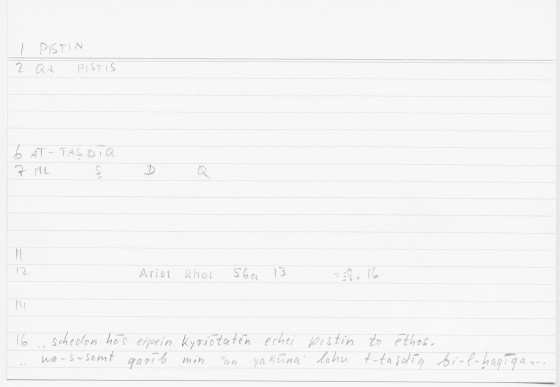 1 PISTIN
2 QA PISTIS
6 AT-TAṢDĪQ
7 ML Ṣ D Q
11
12 Arist Rhet 56a 13 16
14
16 .. schedon hōs eipein kyriōtatēn echei pistin to ēthos.
.. wa-s-samt qarīb min 'an yakūna lahu t-taṣdīq bi-l-ḥaqīqa...